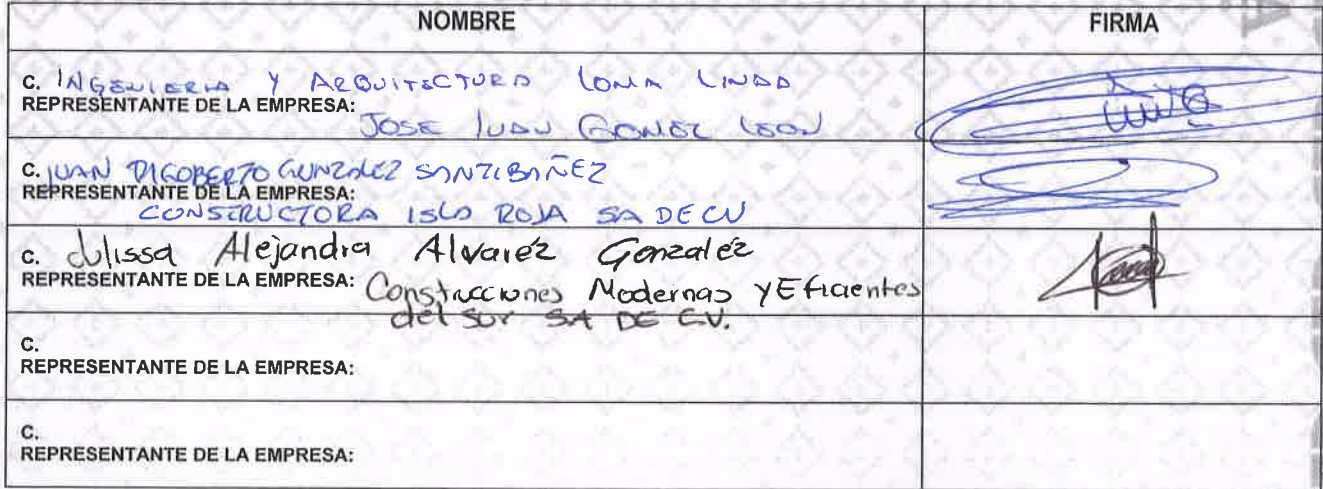 NOMBRE FIRMA
C. INGENIERIA Y ARQUITECTURA LOMA LINDA
REPRESENTANTE DE LA EMPRESA:
JOSE JUAN GOMEZ LEON
C. JUAN RIGOBERTO GUNZALEZ SANTIBAÑEZ
REPRESENTANTE DE LA EMPRESA:
CONSTRUCTORA ISLA ROJA SA DE CV
C. Julissa Alejandra Alvaréz Gonzaléz
REPRESENTANTE DE LA EMPRESA: Construcciones Modernas y Eficientes
del sur SA DE C.V.
C.
REPRESENTANTE DE LA EMPRESA:
C.
REPRESENTANTE DE LA EMPRESA: